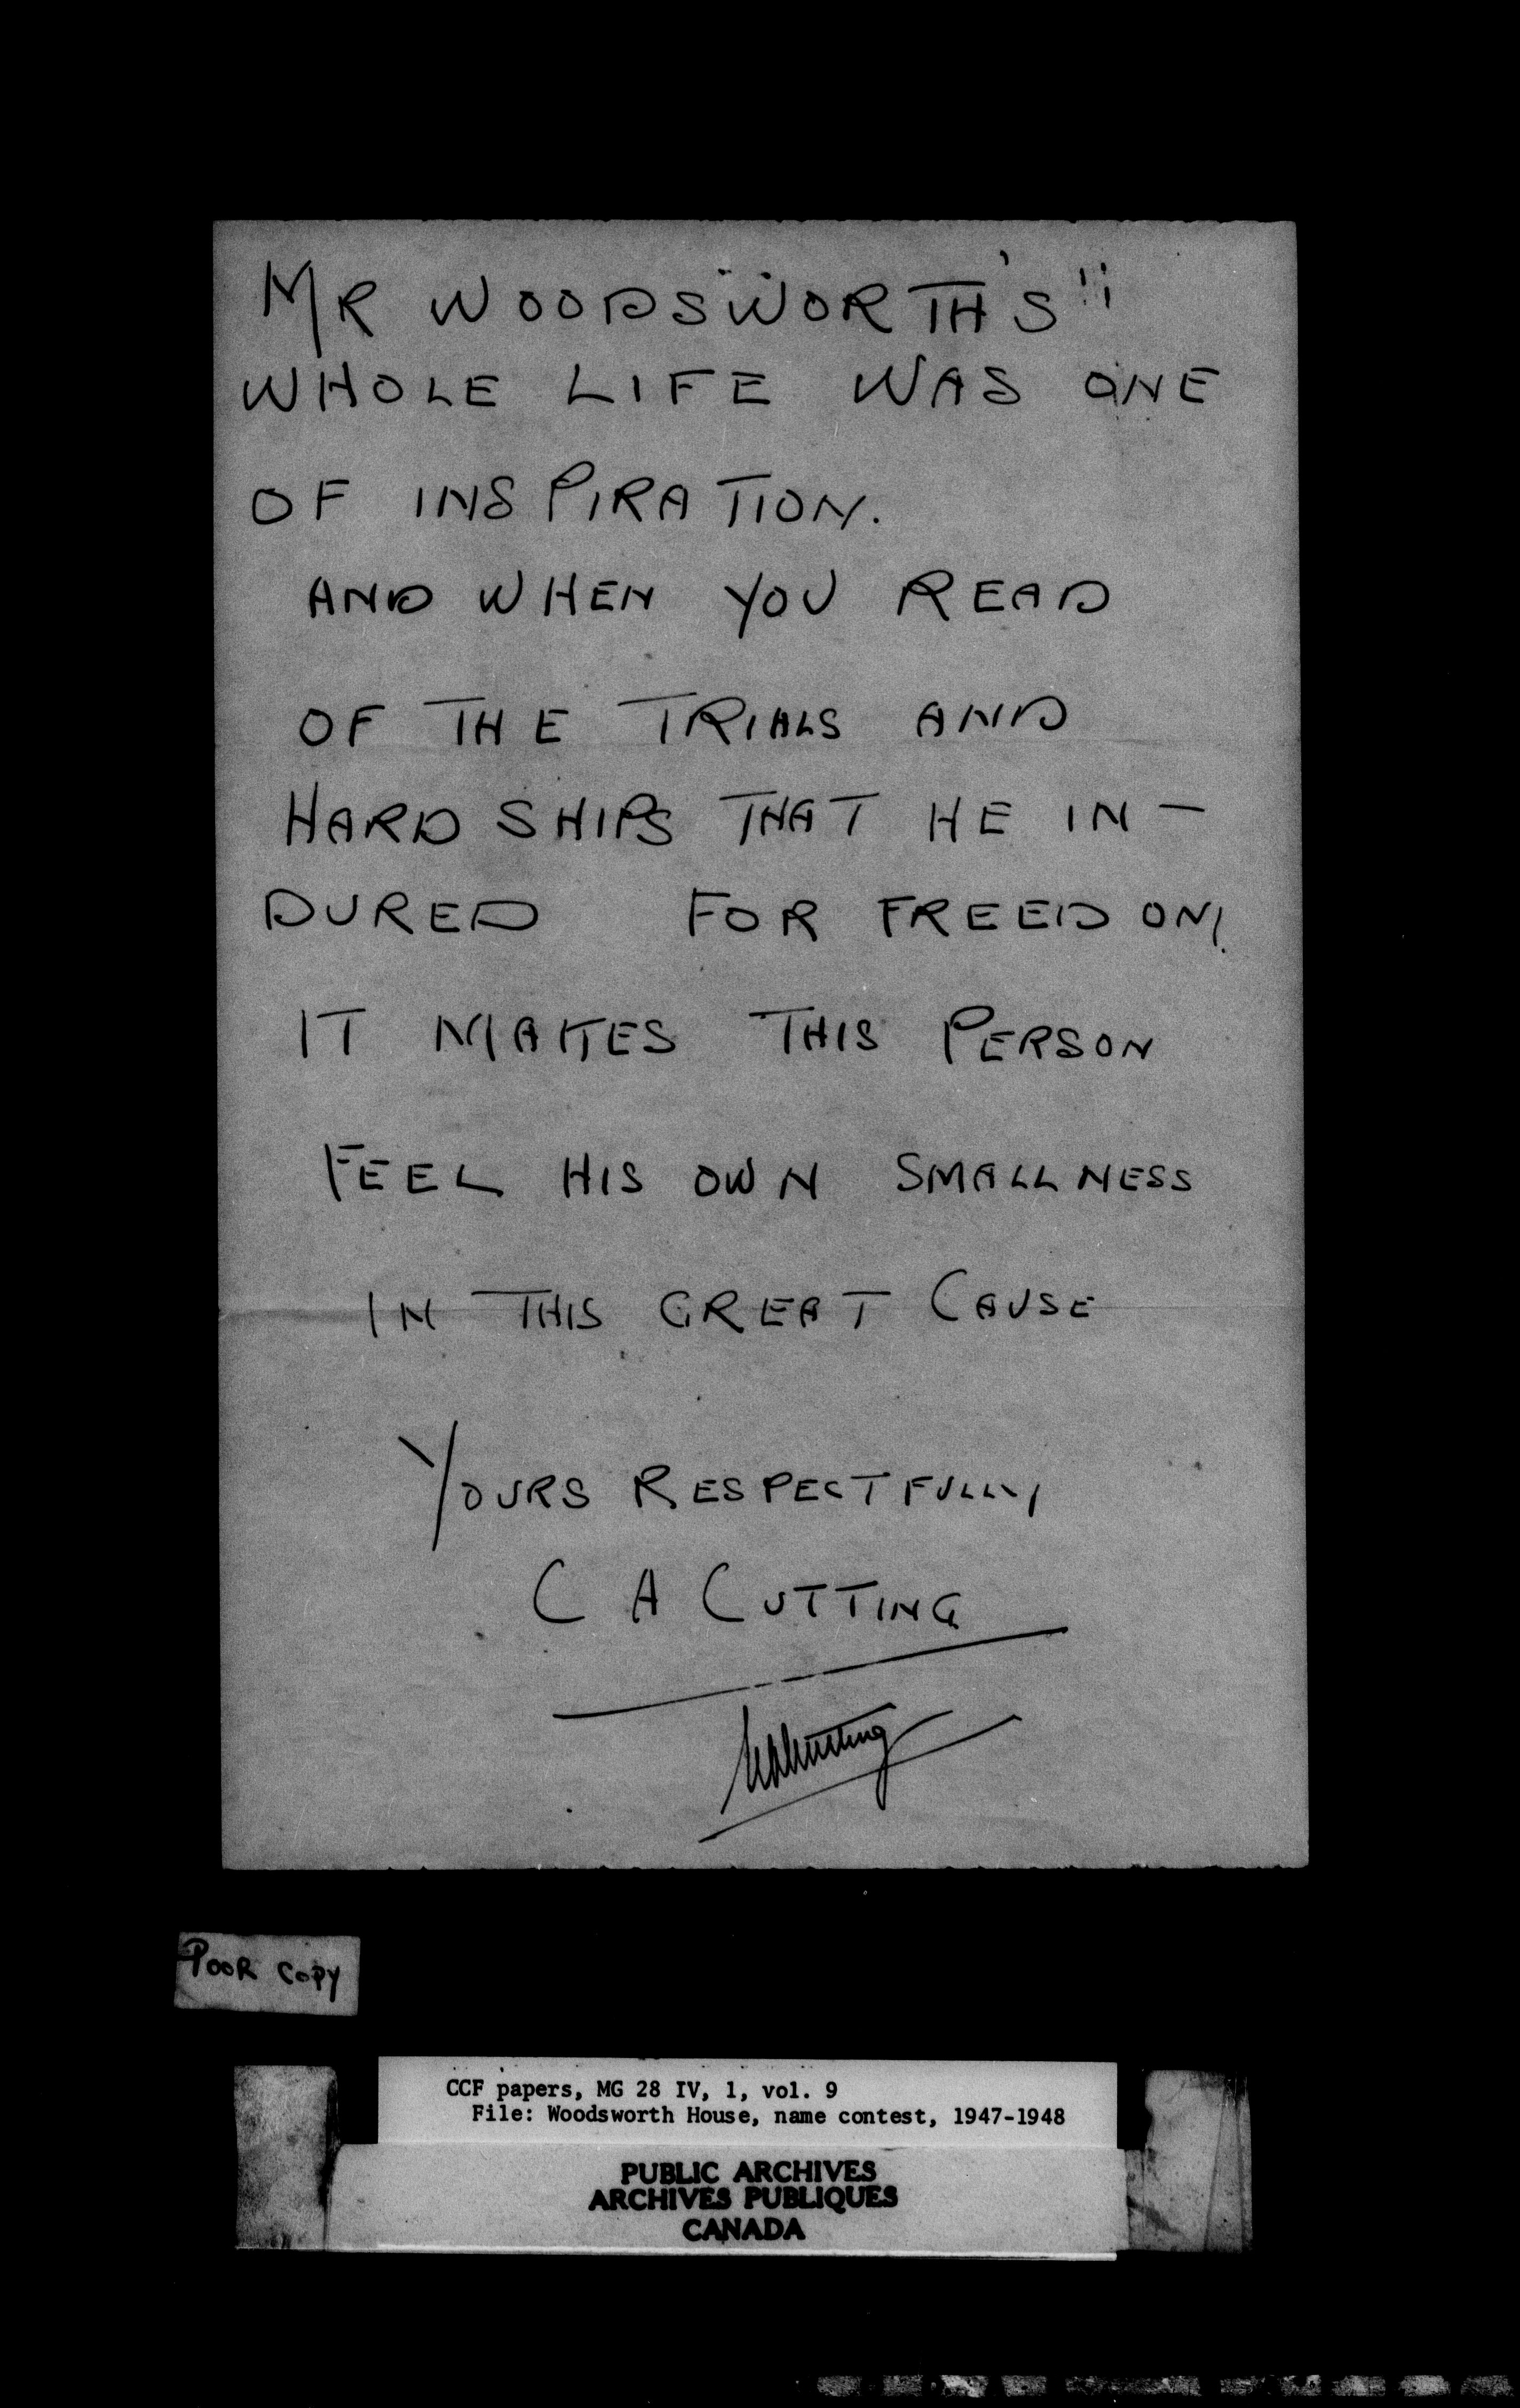 MR WOODSWORTH'S
WHOLE LIFE WAS ONE
OF INSPIRATION.
AND WHEN YOU READ
OF THE TRIALS AND
HARDSHIPS THAT HE IN-
DURED FOR FREEDOM.
IT MAKES THIS PERSON
FEEL HIS OWN SMALLNESS
IN THIS GREAT CAUSE
YOURS RESPECTFULLY
C A CUTTING
CACutting
POOR COPY
CCF papers, MG 28 IV, 1, vol. 9
File: Woodsworth House, name contest, 1947-1948
PUBLIC ARCHIVES
ARCHIVES PUBLIQUES
CANADA